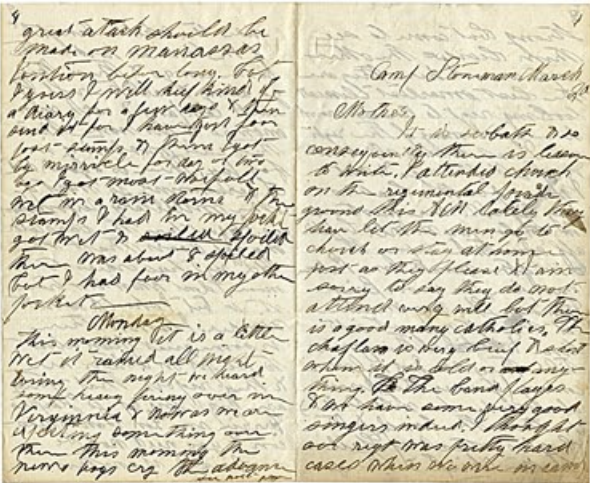 great attack should be
made on Manassas
before long. But
I guess I will keep kind of
a diary for a few days & then
send it for I have got four
post stamps & them I got
by miricle for day or two
ago I got most
wet in a rain storm & the
stamps I had in my
got wet & spoiled
there was about 8 spoiled
but I had four in my other
pocket
Monday
this morning it is a little
wet it rained all night
during the night we heard
some heavy firing over in
Virginnia & now as we are
something over
there this morning the
news boys cry the advance
Camp Stoneman March
Mother
It is sabath & so
consequently there is
to write, I attended church
on the regimental parade
ground this lately they
have let the men go to
church or stay at home
just as they please & I am
sorry to say they do not
attend very well but there
is a good many catholics, The
chaplain is very brief & short
when it is cold or any-
thing The band playes
& we have some very good
singers indeed. I thought
our regt was pretty hard
cases when we were in camp